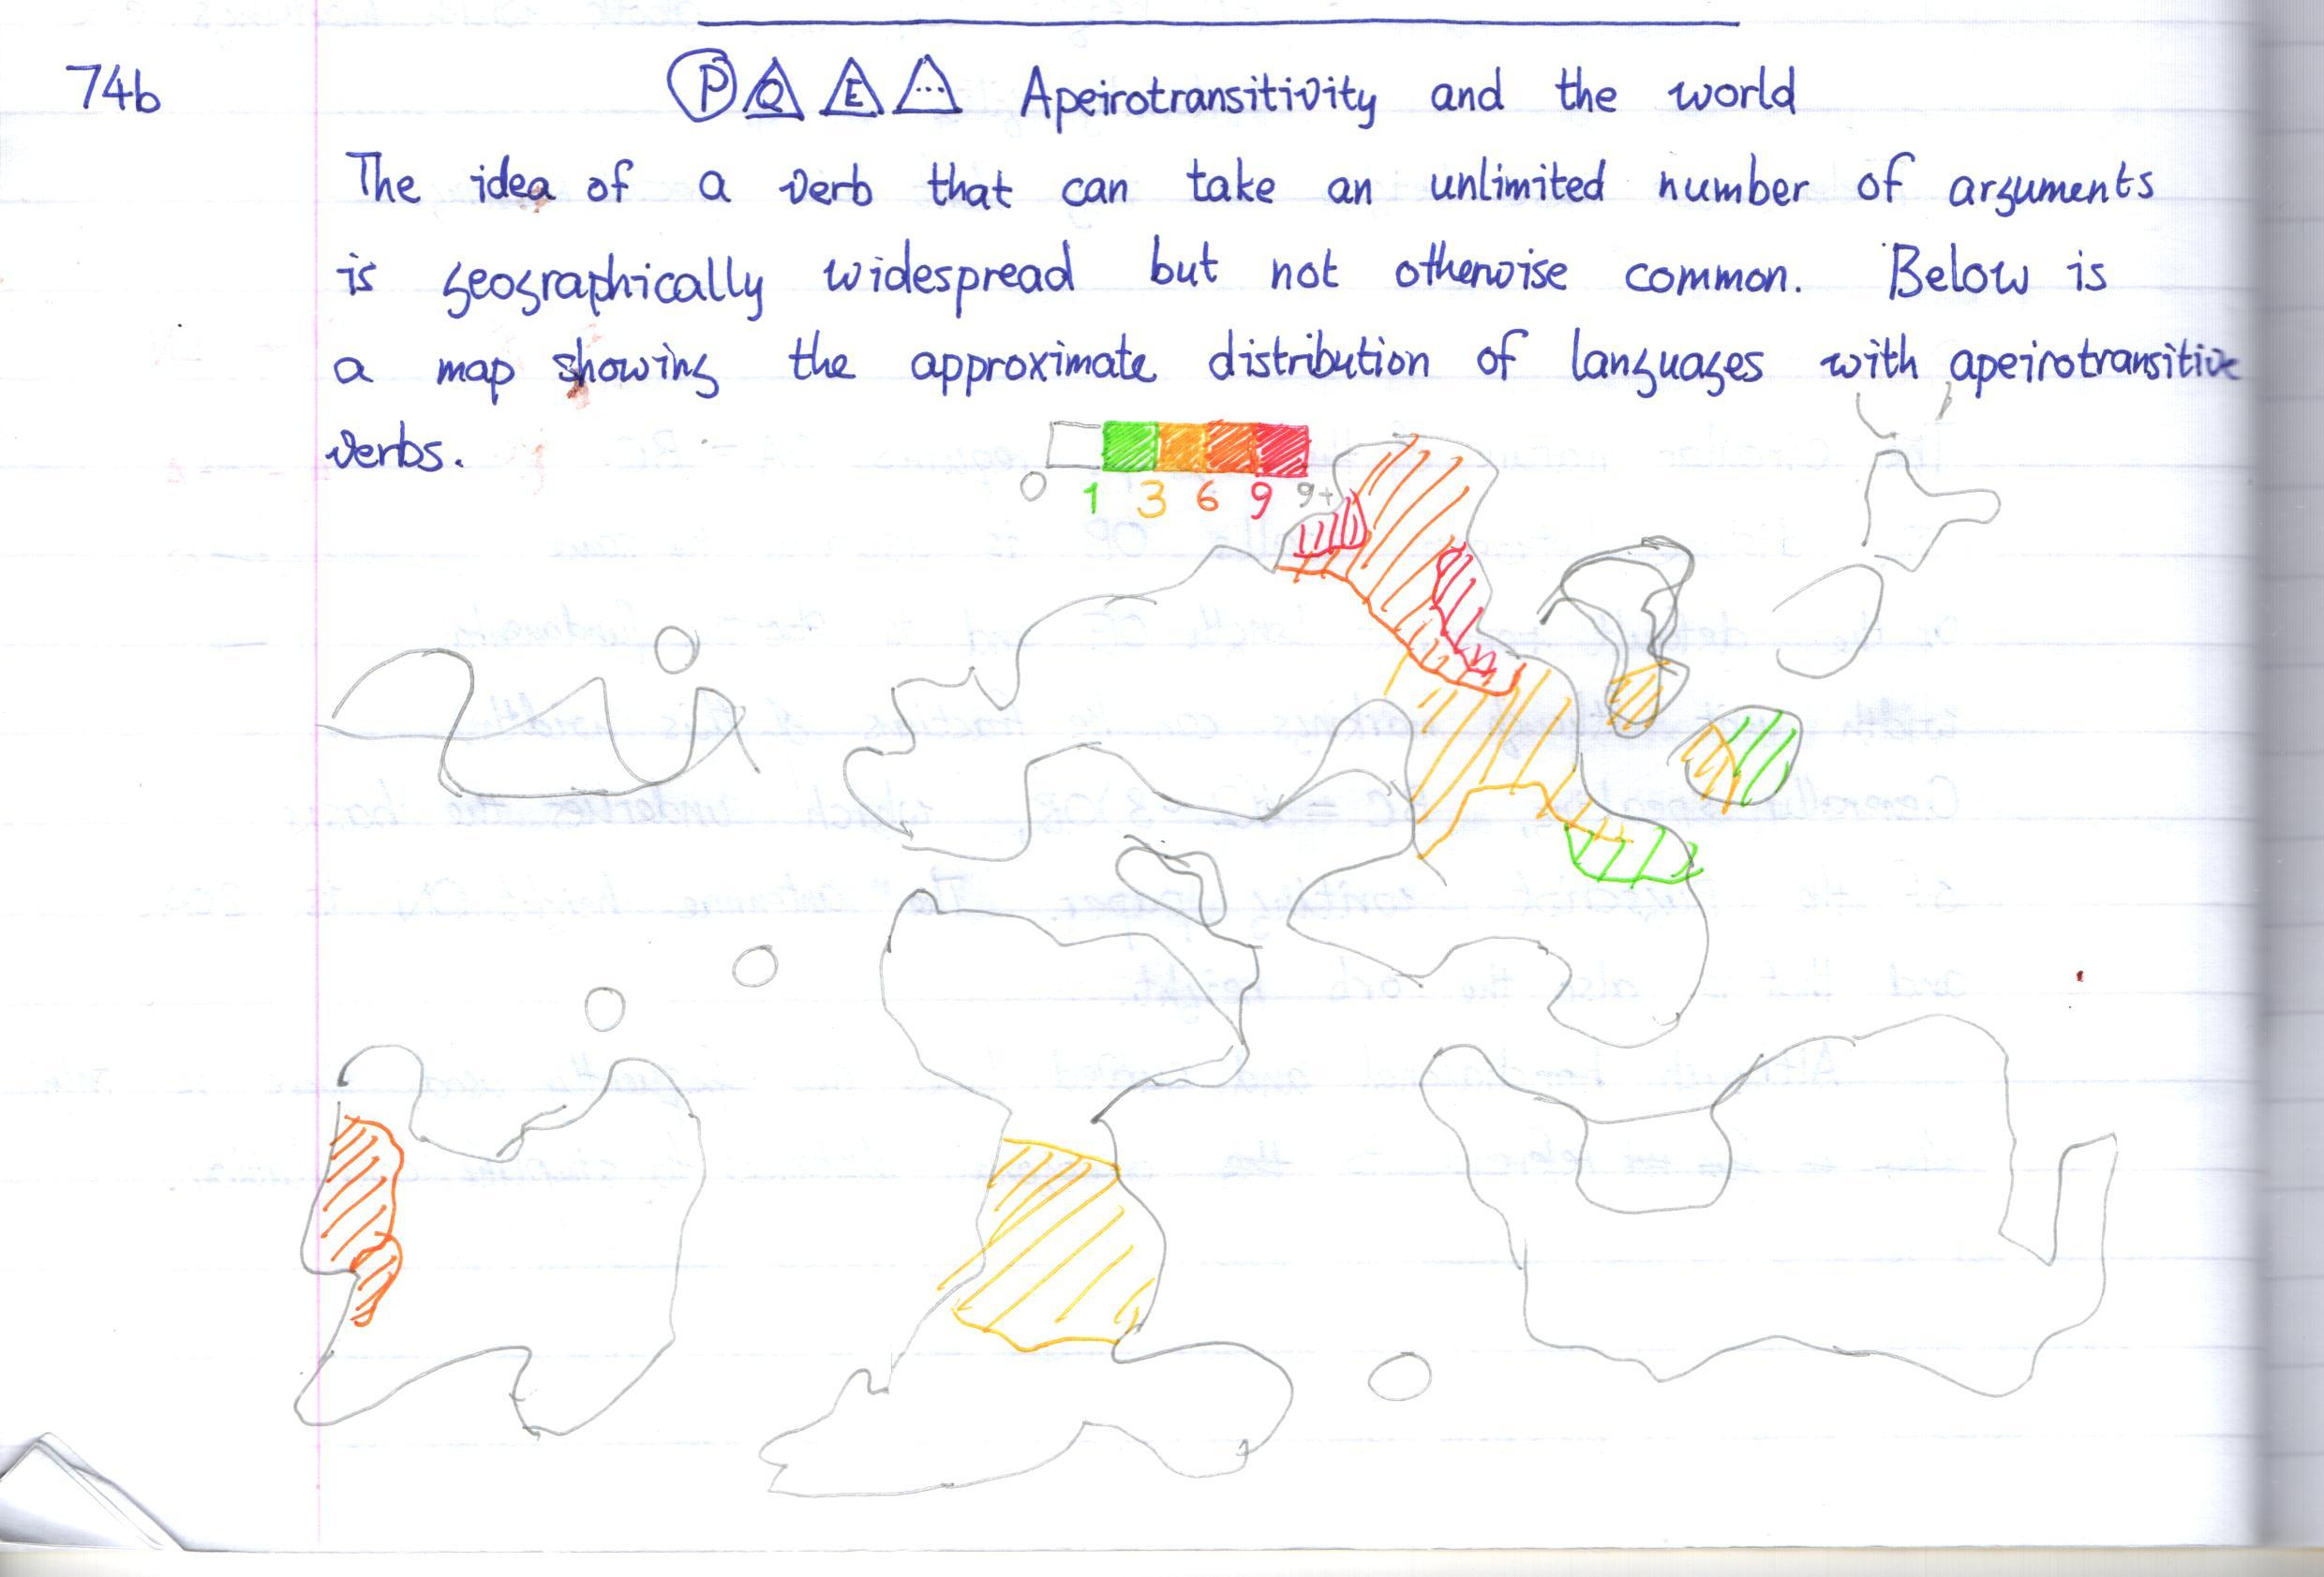 74b
P Q E ... Apeirotransitivity and the world
The idea of a verb that can take an unlimited number of arguments
is geographically widespread but not otherwise common. Below is
a map showing the approximate distribution of languages with apeirotransitive
verbs.
0 1 3 6 9 9+